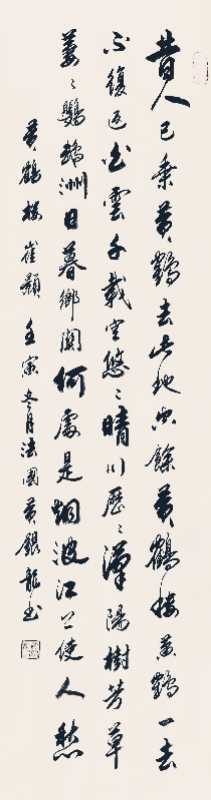 昔人已乘黄鶴去此地空餘黄鶴樓黄鶴一去
不復返白雲千載空悠〻晴川歷〻漢陽樹芳草
萋〻鸚鵡洲日暮鄉關何處是烟波江上使人愁
黄鶴樓 崔顥 壬寅冬月法國黄銀龍書